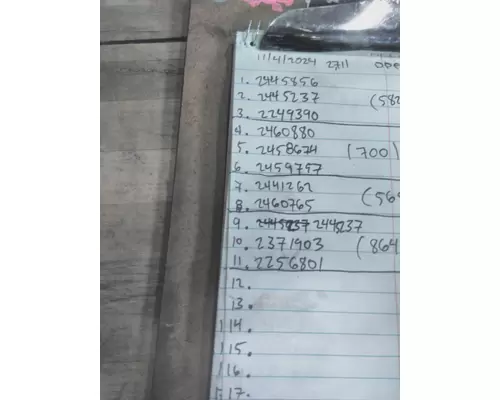 11/4/2024 2711
1. 2445856
2. 2445237 (582
3. 2249390
4. 2460880
5. 2458674 (700)
6. 2459797
7. 2441262 (569
8. 2460765
9. 2445237 244237
10. 2371903 (864
11. 2256801
12.
13.
14.
15.
16.
17.